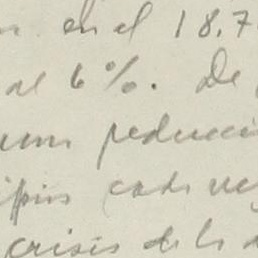 en el 18,7
al 6%. De
una reducci
cada vez
crisis de la